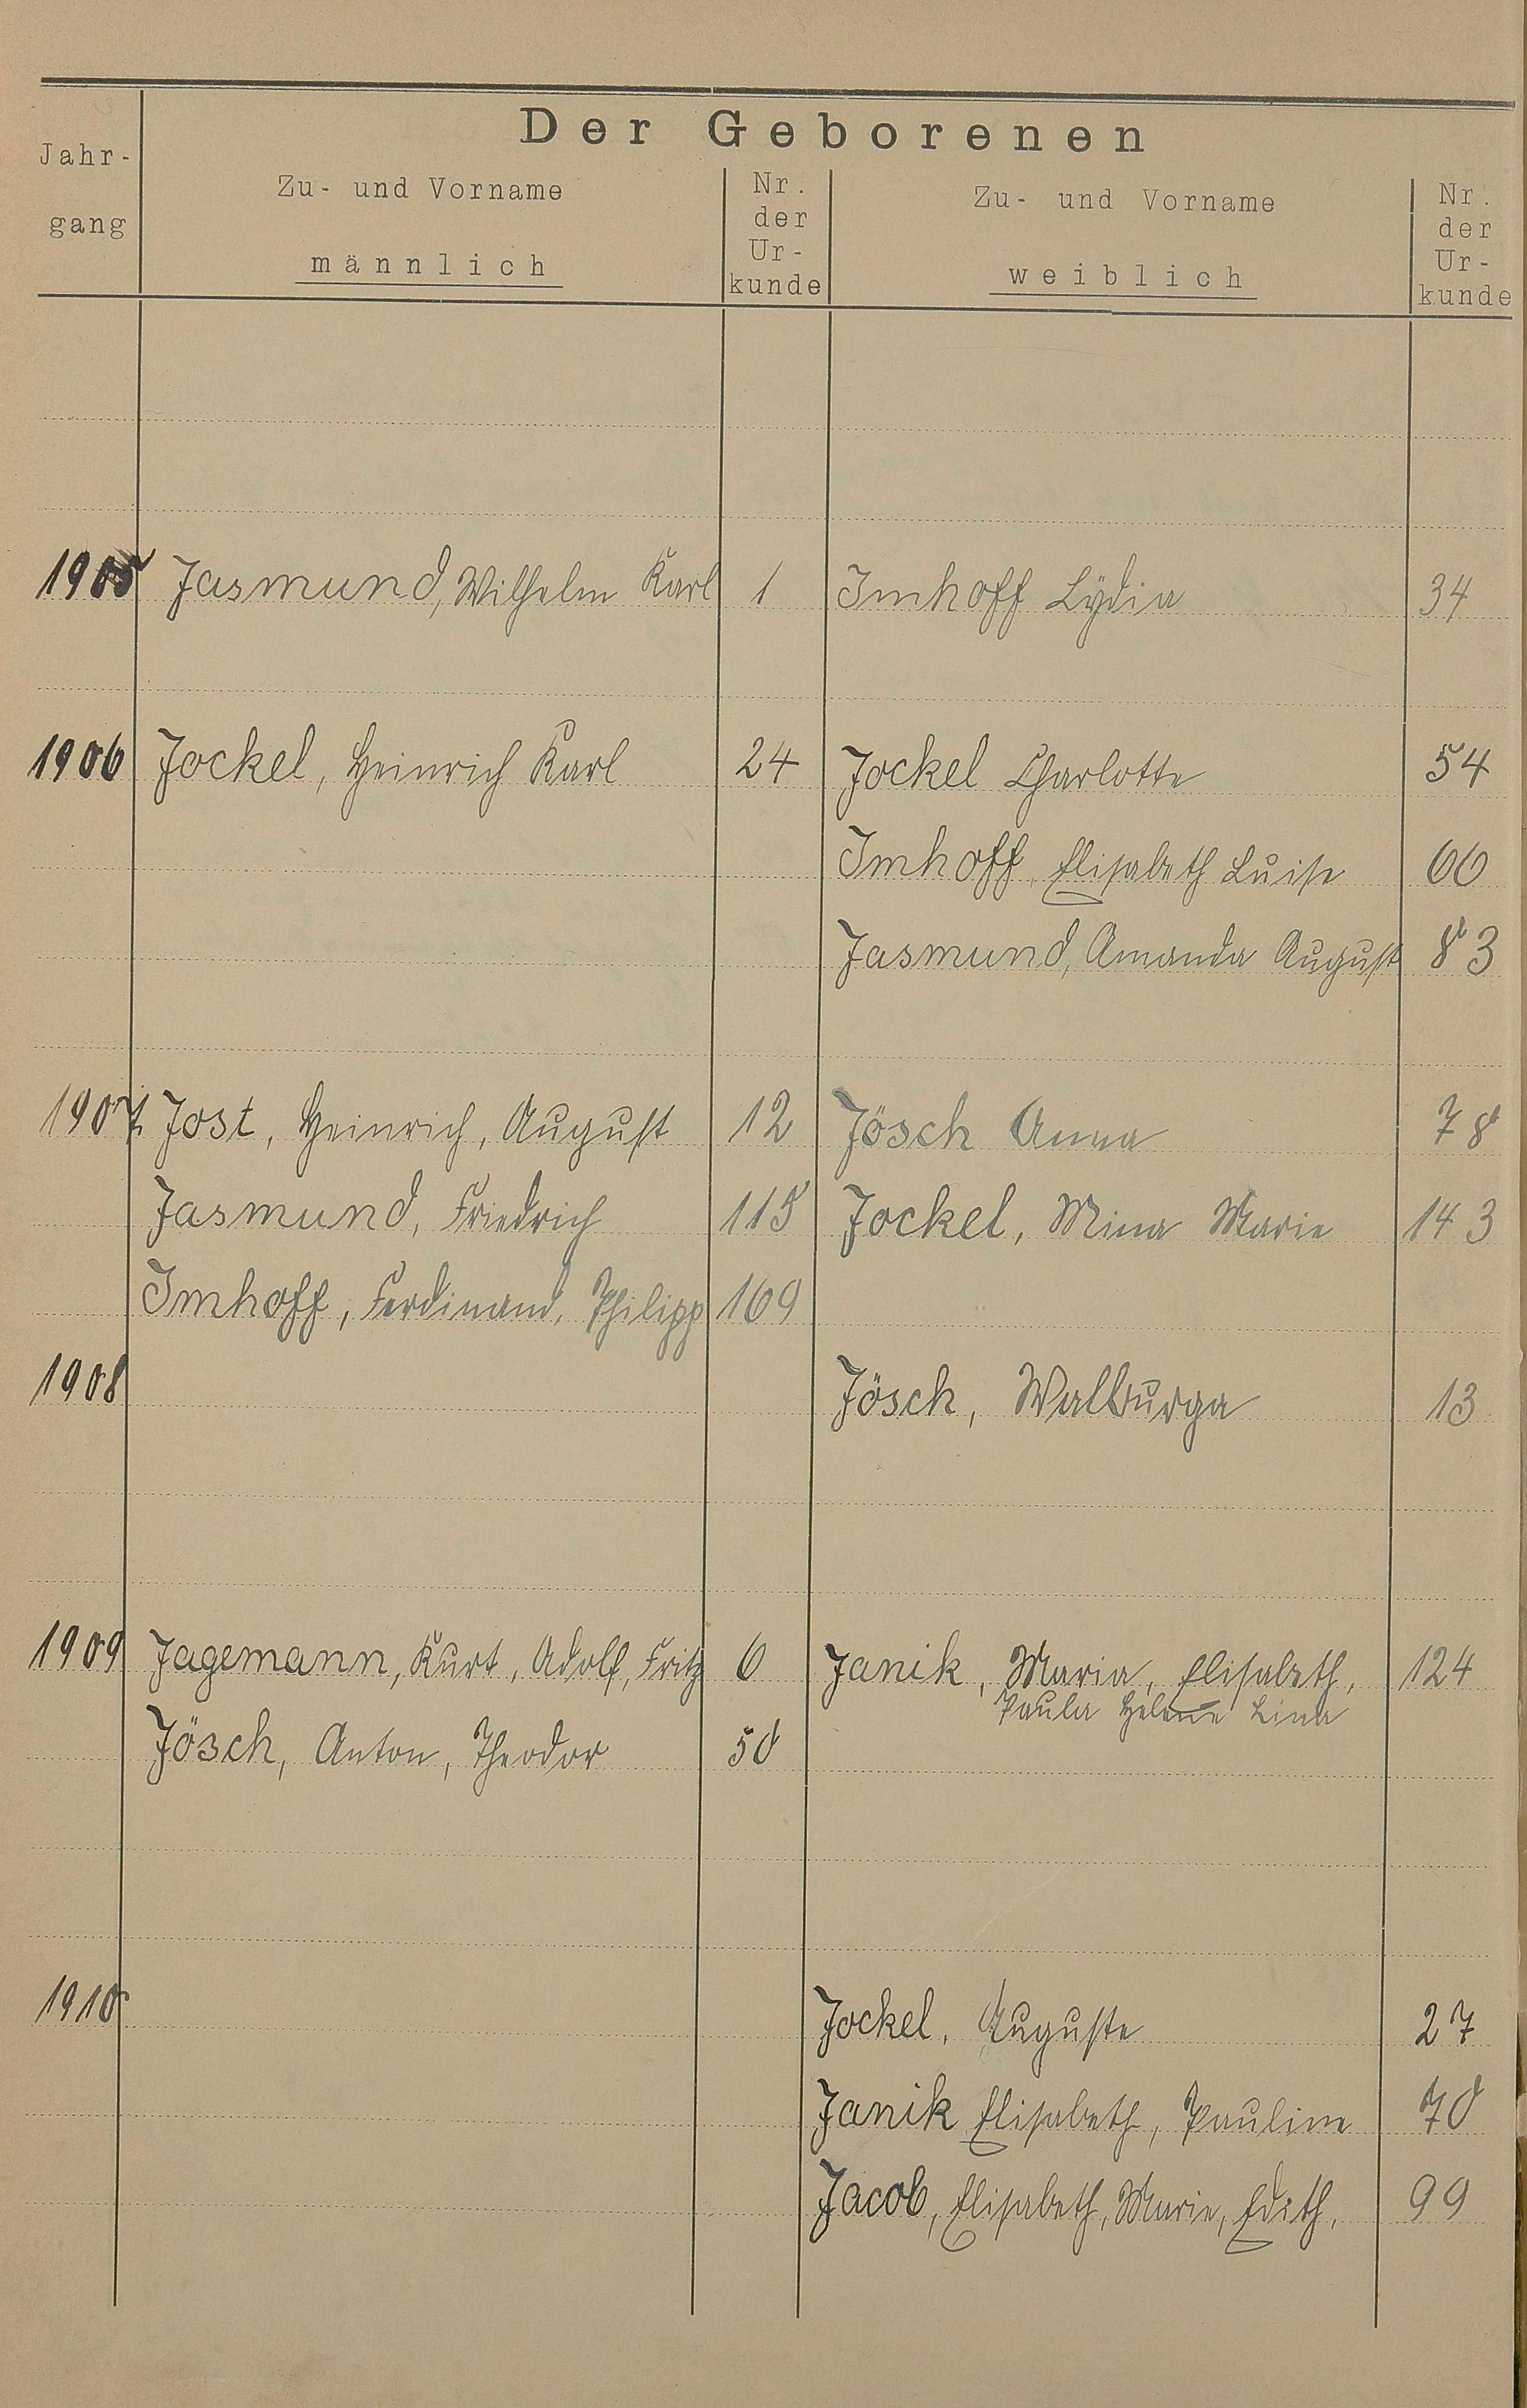 Der Geborenen
Jahr-
gang
Zu- und Vorname
männlich
Nr.
der
Ur-
kunde
Zu- und Vorname
weiblich
Nr.
der
Ur-
kunde
1905 Jasmund, Wilhelm Karl 1 Imhoff Lydia 34
1906 Jockel, Heinrich Karl 24 Jockel Charlotte 54
Imhoff, Elisabeth Luise 60
Jasmund, Amanda August 83
1907 Jost, Heinrich, August 12 Jösch Anna 78
Jasmund, Friedrich 115 Jockel, Mina Marie 143
Imhoff, Ferdinand, Philipp 169
1908 Jösch, Walburga 13
1909 Jagemann, Kurt, Adolf, Fritz 6 Janik, Maria, Elisabeth, 124
Paula Helene Lina
Jösch, Anton, Theodor 50
1910 Jockel, Auguste 27
Janik Elisabeth, Pauline 70
Jacob, Elisabeth, Marie, Edith, 99